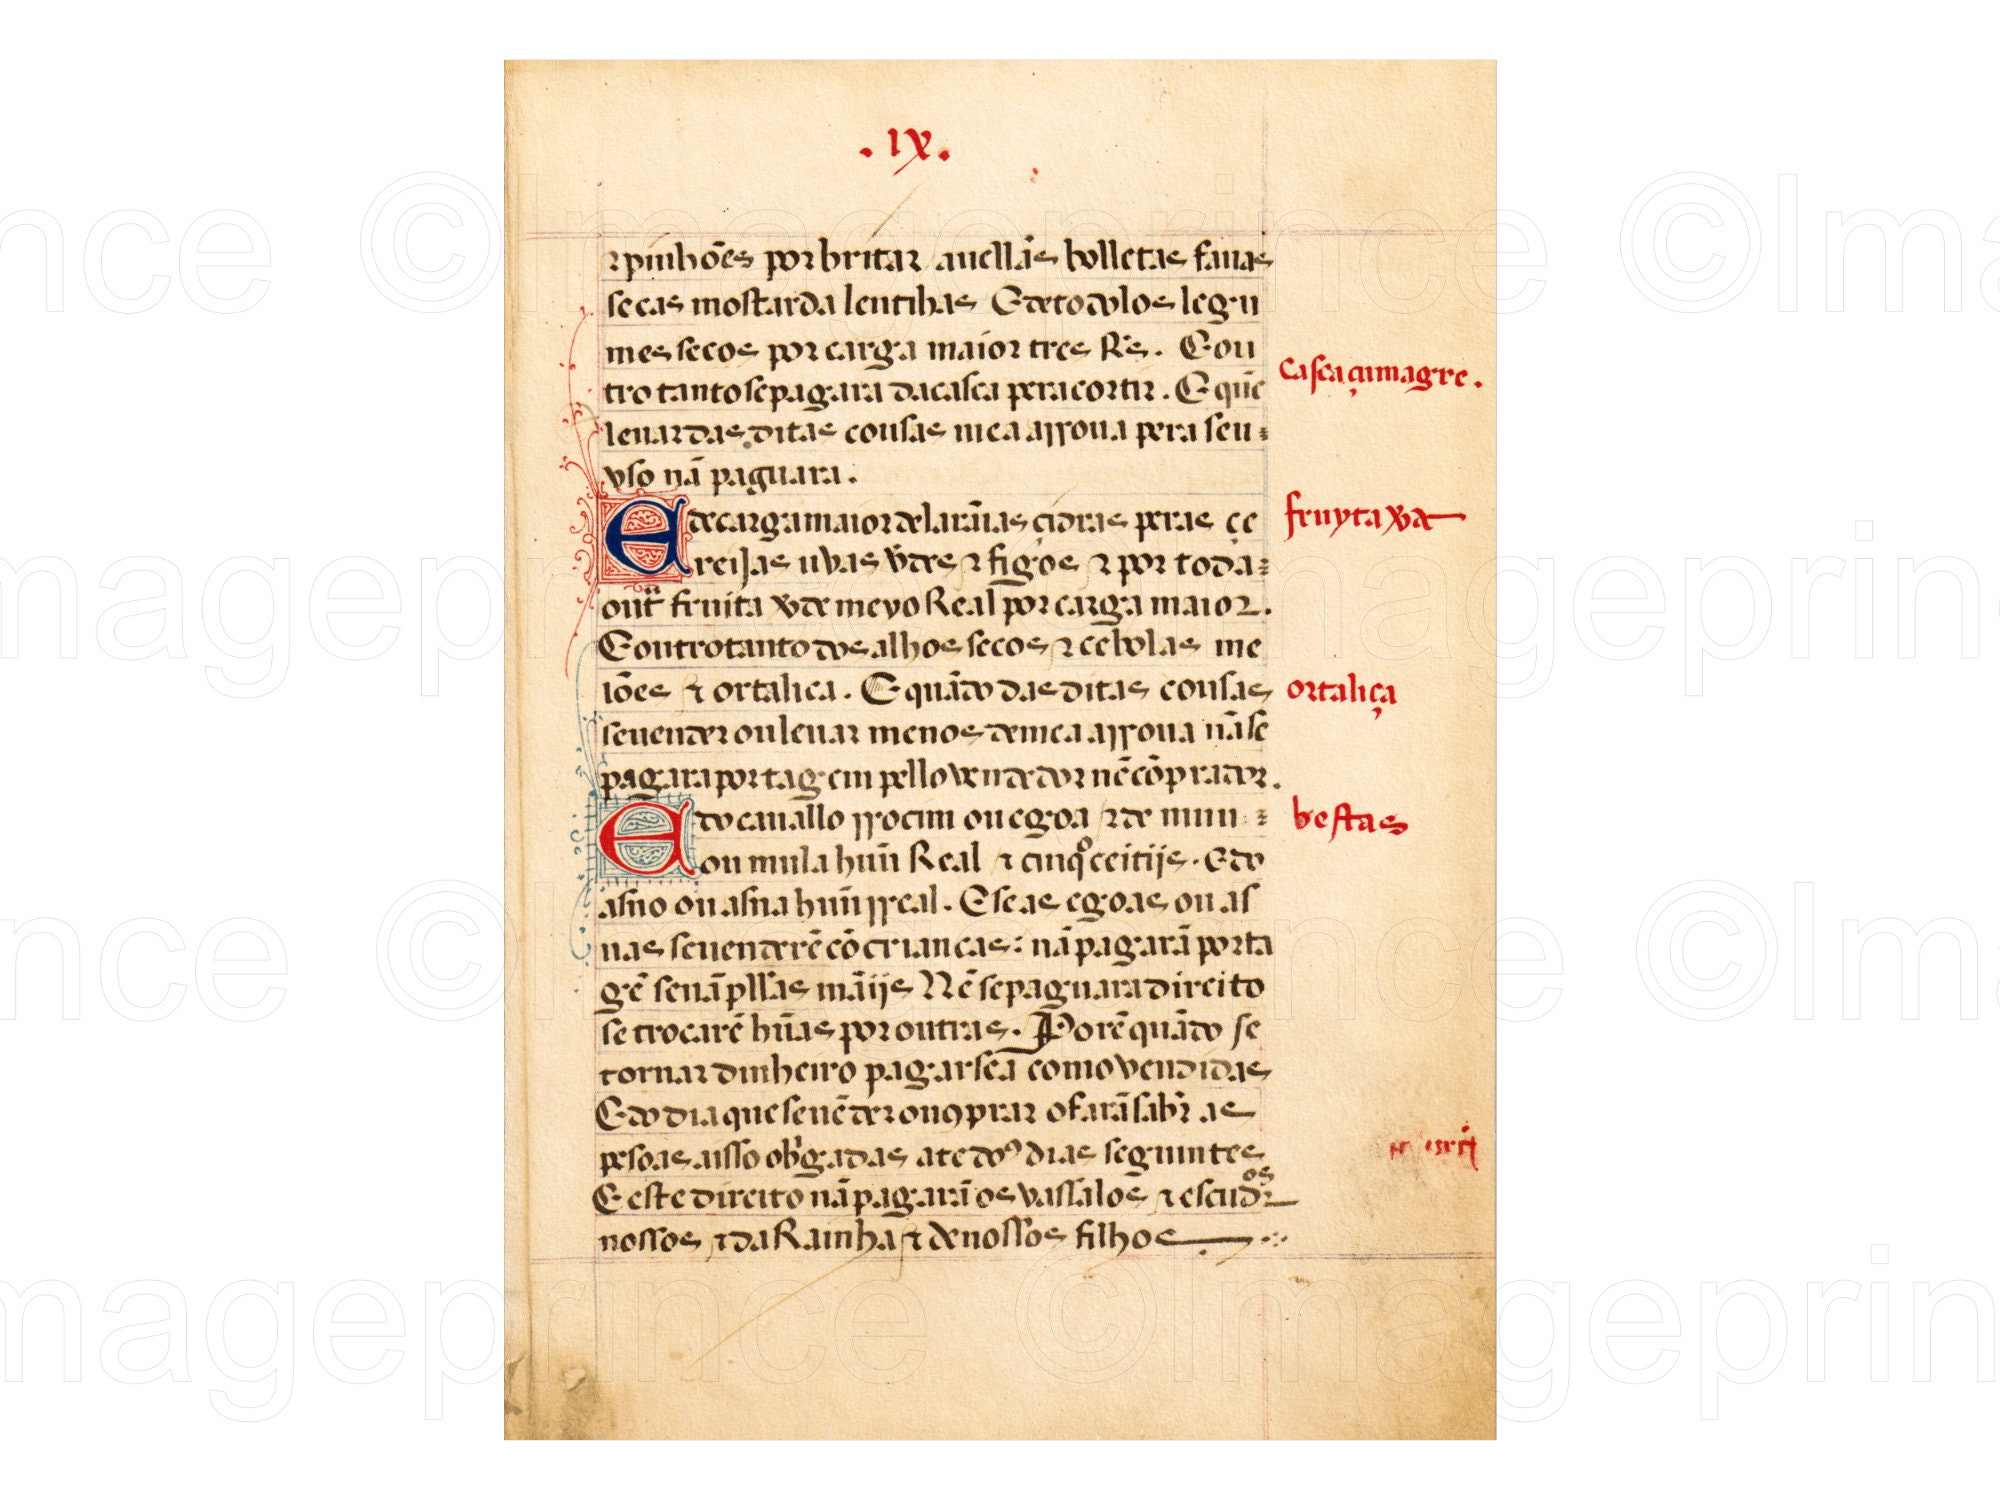 .ix.
⁊ pinhões por britar auellãs bolletas fauas
secas mostarda lentilhas E de todolos legu
mes secos por carga maior tres Rs. E ou
casca çumagre.
tro tanto se pagara da casca pera cortir. E quē
leuar das ditas cousas mea arroua pera seu
vso nã paguara.
E de carga maior de larãias çidras peras çe
fruyta vde
reijas uvas vdes ⁊ figos ⁊ por toda
outra fruita vde meyo Real por carga maior.
E outro tanto dos alhos secos ⁊ cebolas me
lões ⁊ ortaliça. E quãdo das ditas cousas
ortaliça
se uender ou leuar menos de mea arroua nã se
pagara portagem pello vendedor nē cõprador.
E do cauallo rrocim ou egoa ⁊ de muu
bestas
ou mula huũ Real ⁊ cinqº ceitijs. E do
asno ou asna huũ rreal. E se as egoas ou as
nas se uenderē cõ criancas: nã pagarã porta
gē senã pllãs mãijs Nē se paguara direito
se trocarē hũas por outras. Porē quãdo se
tornar dinheiro pagarseã como vendidas
E do dia que se uēder ou ꝯprar o farã sabr as
pesoas a isso obrgadas ate dos dias seguintes
E este direito nã pagarã os vassalos ⁊ escudros
nossos ⁊ da Rainha ⁊ de nossos filhos